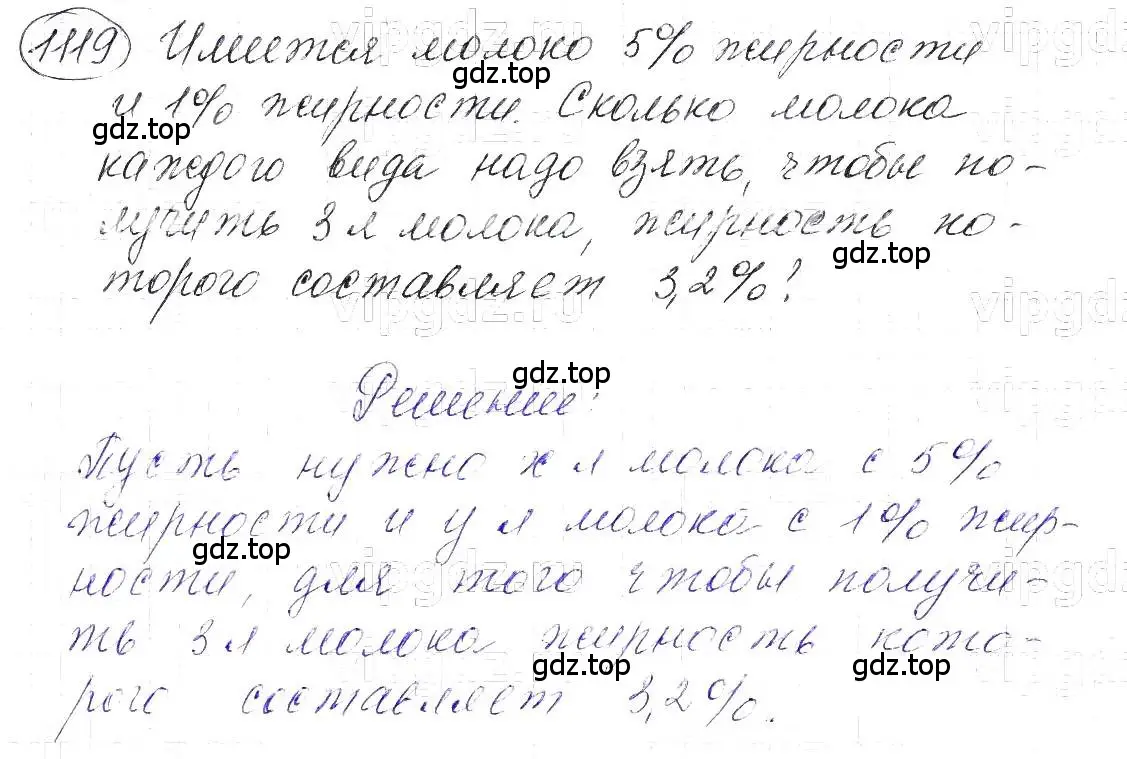 1119 Имеется молоко 5% жирности
и 1% жирности. Сколько молока
каждого вида надо взять, чтобы по-
лучить 3 л молока, жирность ко-
торого составляет 3,2%?
Решение:
Пусть нужно x л молока с 5%
жирности и y л молока с 1% жир-
ности, для того чтобы получи-
ть 3 л молока жирность кото-
рого составляет 3,2%.
gdz.top
gdz.top
gdz.top
gdz.top
gdz.top
gdz.top
gdz.top
vipgdz.ru
vipgdz.ru
vipgdz.ru